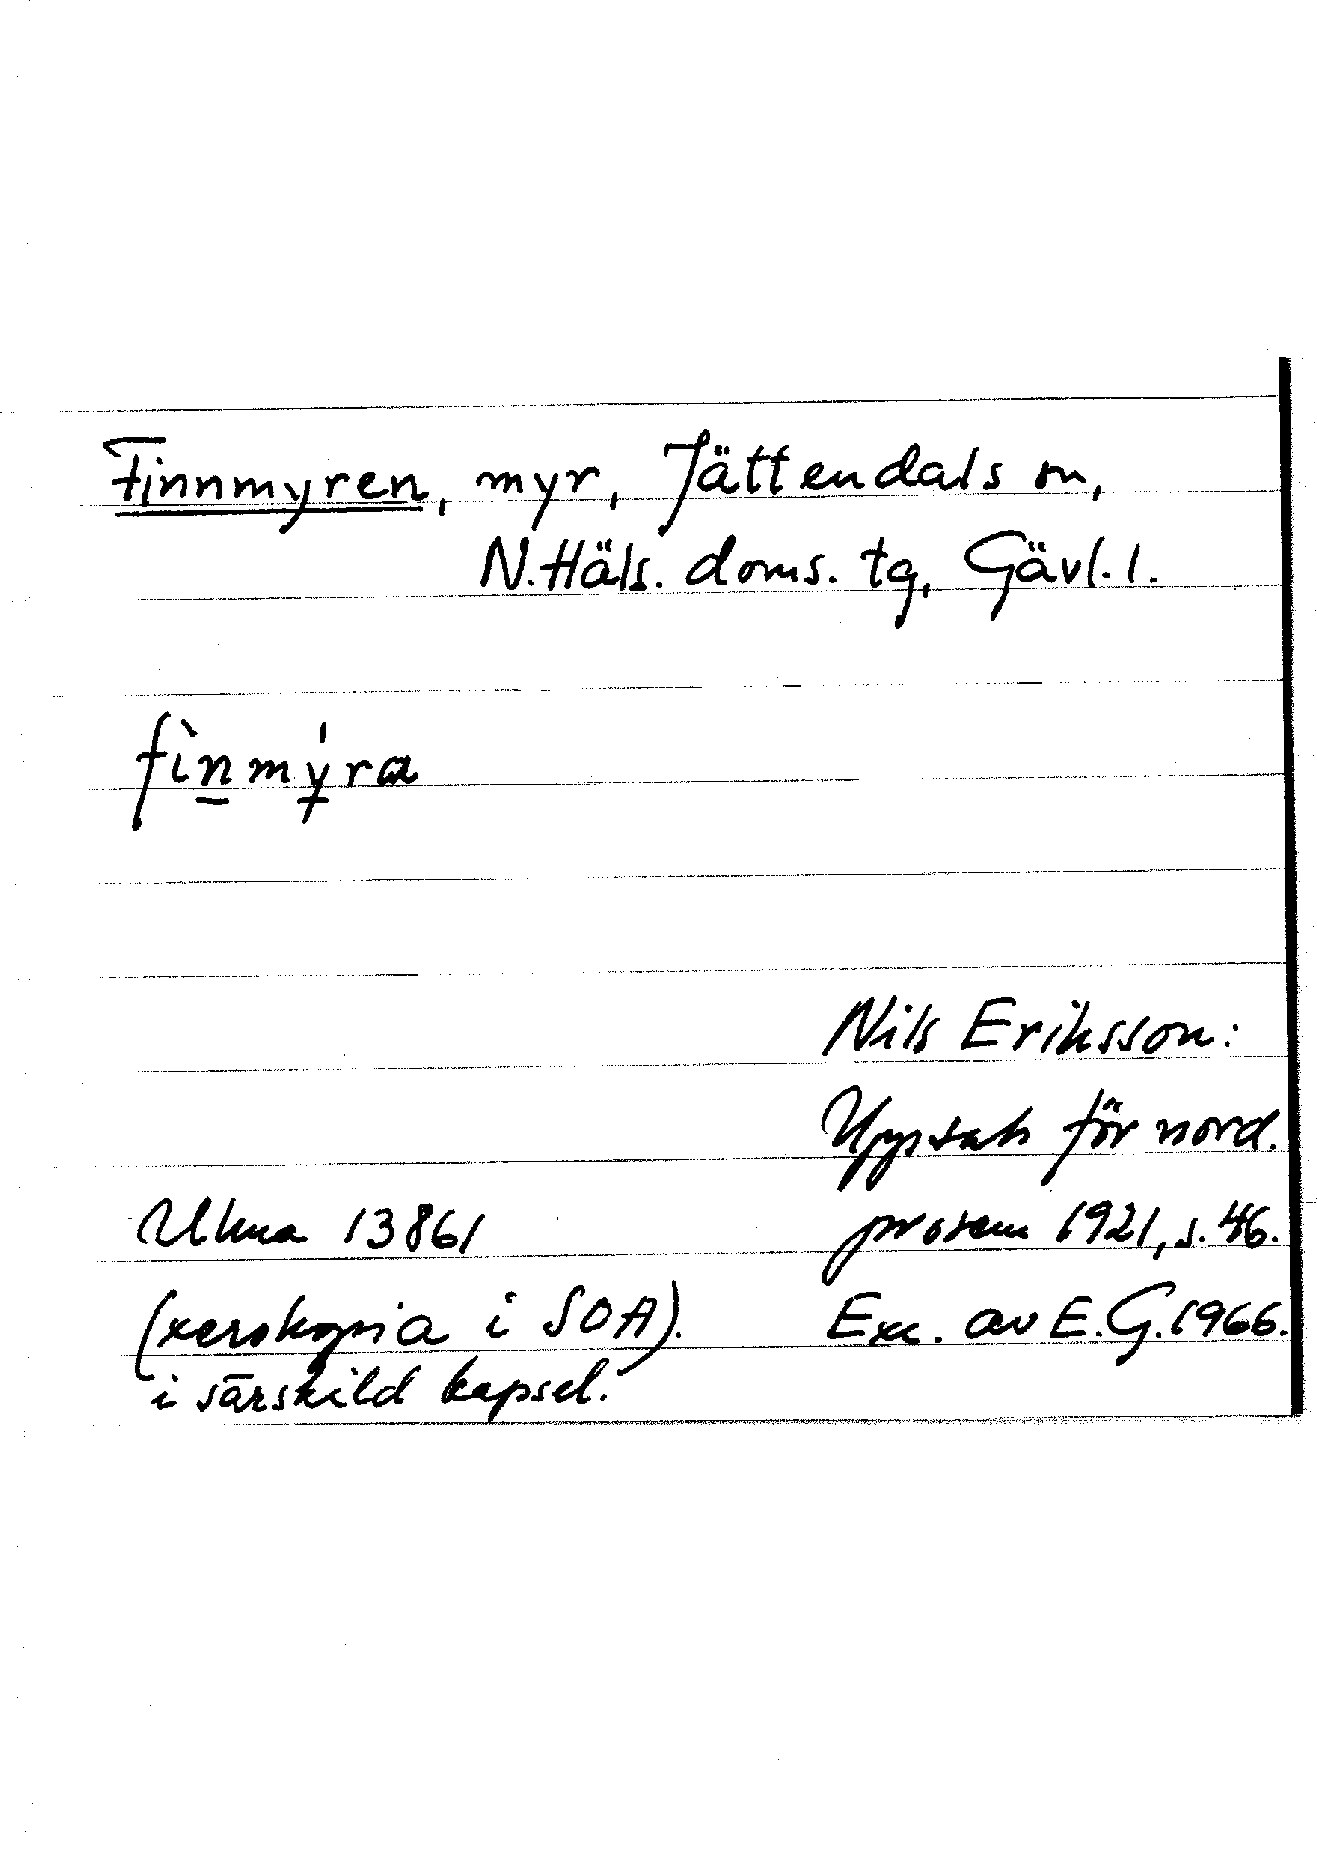 Finnmyren, myr, Jättendals sn,
N. Häls. doms. tg, Gävl. l.
fìnmýra
Nils Eriksson:
Uppsats för nord.
Ulma 13861 prosem 1921, s. 46.
(xerokopia i SOA). Exc. av E. G. 1966.
i särskild kapsel.